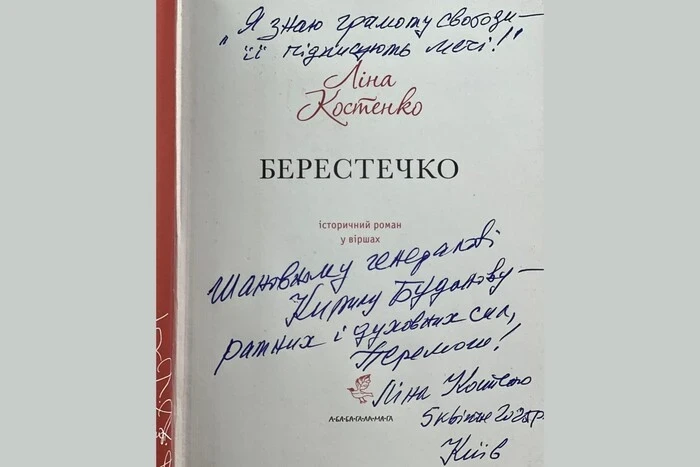 „Я знаю грамоту свободи —
її підписують мечі!"
Ліна
Костенко
БЕРЕСТЕЧКО
історичний роман
у віршах
Шановному генералові
Кирилу Буданову —
ратних і духовних сил,
Перемоги!
Ліна Костенко
А-БА-БА-ГА-ЛА-МА-ГА
5 квітня
Київ